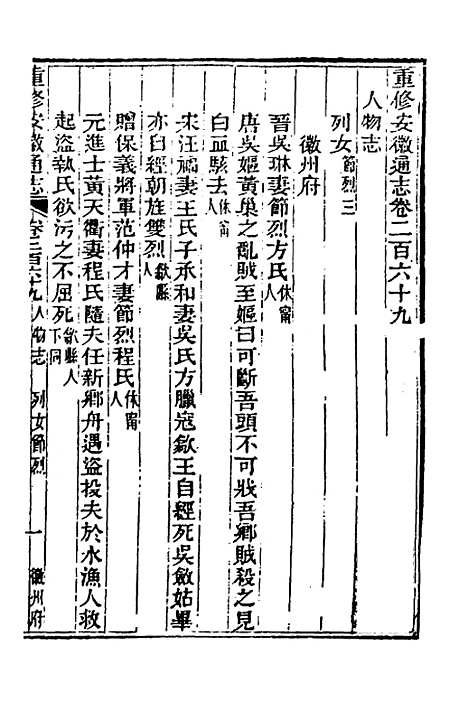 重修安徽通志卷二百六十九
人物志
列女節烈三
徽州府
晉吳琳妻節烈方氏休甯人
唐吳嫗黃巢之亂賊至嫗曰可斷吾頭不可戕吾鄉賊殺之見
白血駭去休甯人
宋汪橘妻王氏子承和妻吳氏方臘寇歙王自經死吳斂姑畢
亦自經朝旌雙烈歙縣人
贈保義將軍范仲才妻節烈程氏休甯人
元進士黃天衢妻程氏隨夫任新鄉舟遇盜投夫於水漁人救
起盜執氏欲污之不屈死歙縣人下同
重修安徽通志 卷二百六十九 人物志 列女節烈 一 徽州府